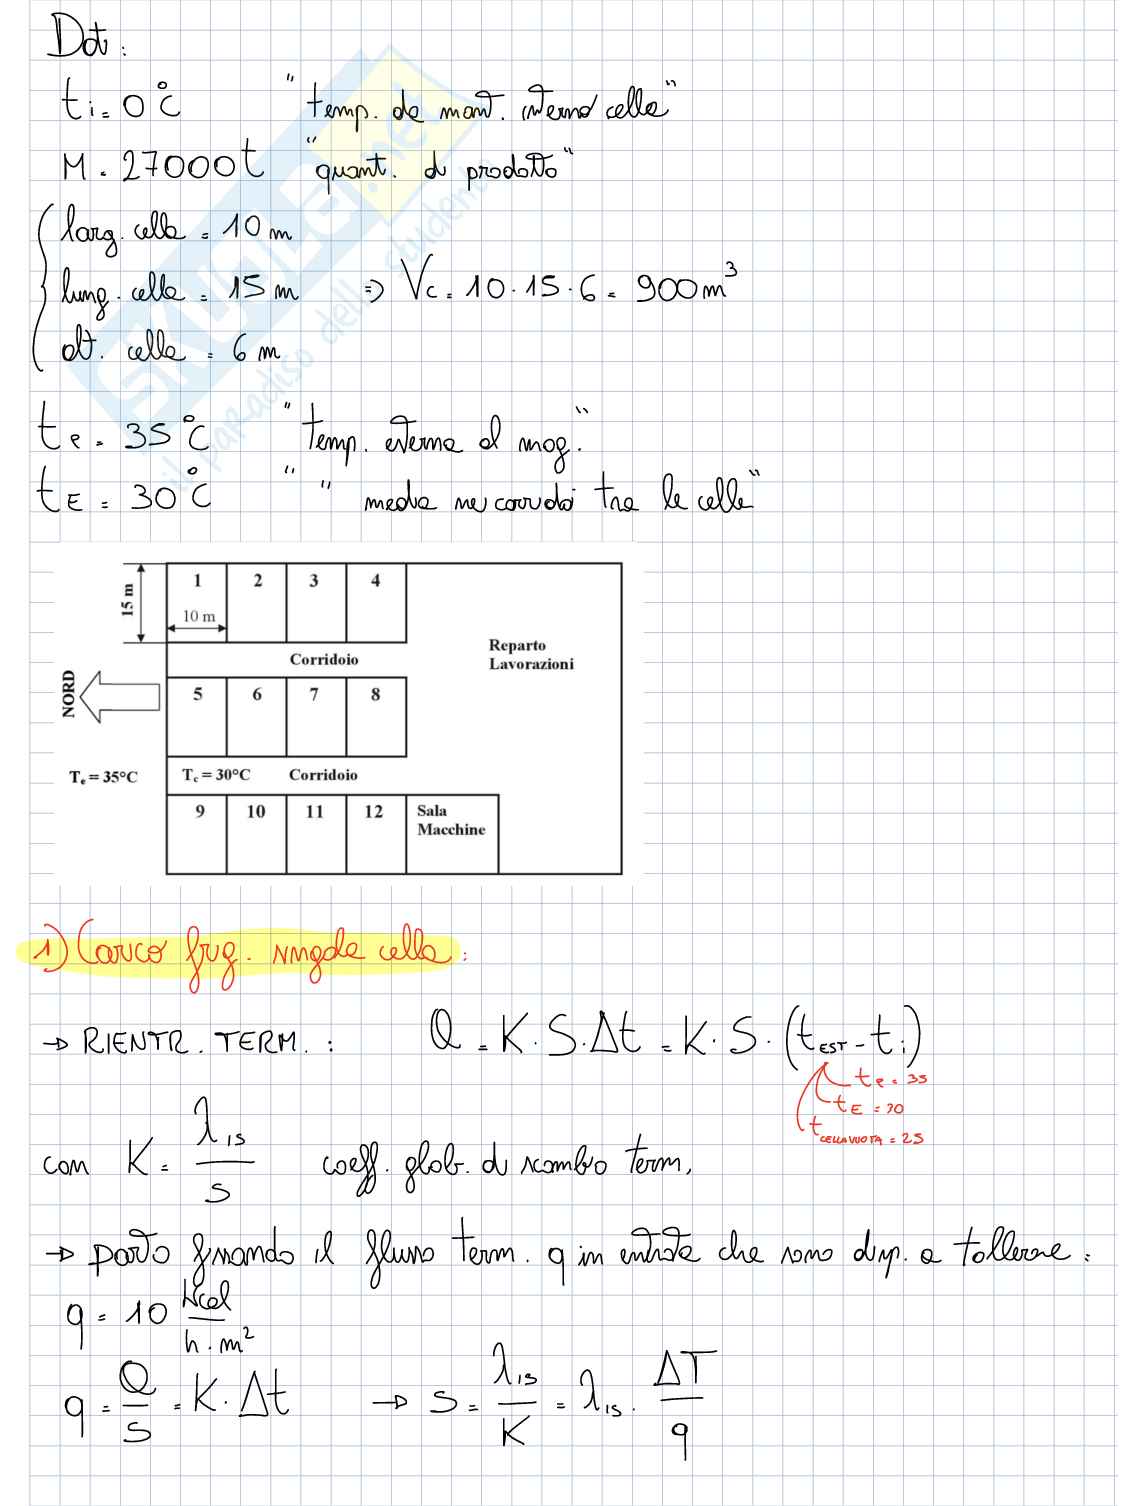 Dati:
ti = 0°C "temp. di mant. interno celle"
M = 27000t "quant. di prodotto"
larg. cella = 10 m
lung. cella = 15 m => Vc = 10·15·6 = 900 m³
alt. cella = 6 m
te = 35°C "temp. esterna al mag."
tE = 30°C " " media nei corridoi tra le celle"
SKUOLA.net
il paradiso dello studente
1 2 3 4
15 m
10 m
Reparto
Lavorazioni
Corridoio
NORD
5 6 7 8
Te = 35°C Tc = 30°C Corridoio
9 10 11 12 Sala
Macchine
1) Carico frig. singola cella:
→ RIENTR. TERM.: Q = K·S·Δt = K·S·(tEST - ti)
te = 35
tE = 30
tCELLA VUOTA = 25
con K = λis/s coeff. glob. di scambio term.
→ parto fissando il flusso term. q in entrata che sono disp. a tollerare:
q = 10 kcal/h·m²
q = Q/S = K·Δt → s = λis/K = λis·ΔT/q